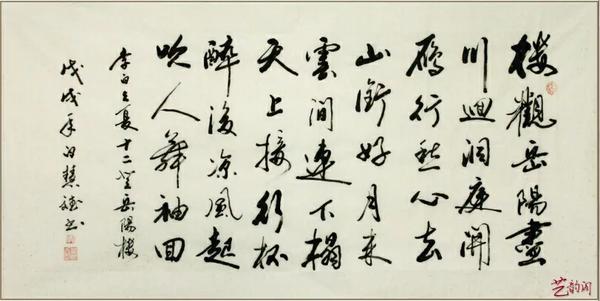 楼觀岳陽盡
川迴洞庭開
鴈行愁心去
山銜好月来
雲間連下榻
天上接行杯
醉後凉風起
吹人舞袖回
李白与夏十二登岳陽楼
戊戌年白慧书
艺韵阁